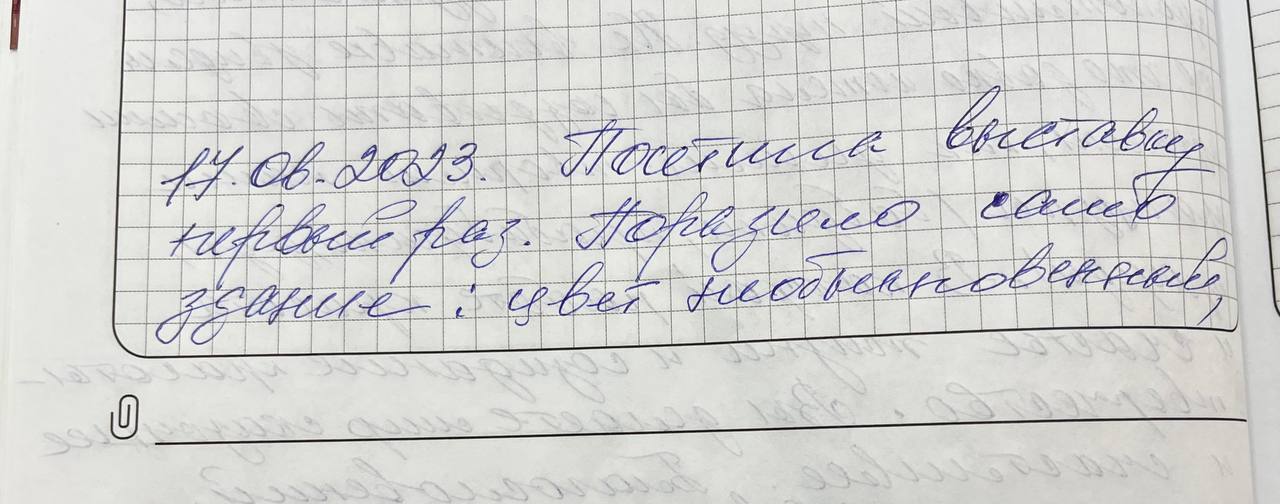 17.06.2023. Посетила выставку
первый раз. Поразило само
здание: цвет необыкновенный,